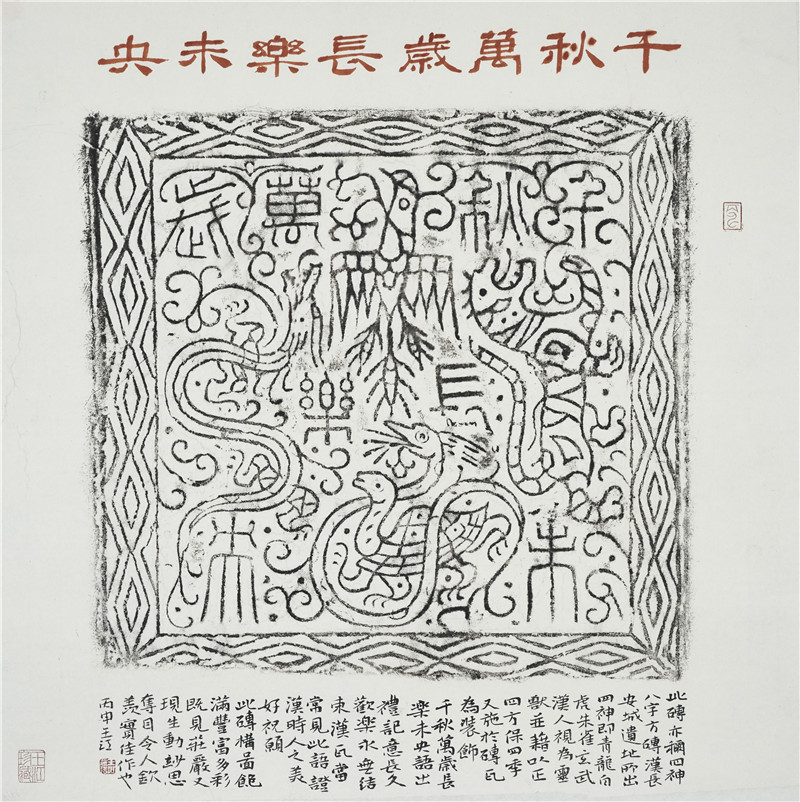 千秋萬歲長樂未央
千秋萬歲
長樂
未央
此磚亦稱四神
八字方磚漢長
安城遺址所出
四神即青龍白
虎朱雀玄武
漢人視為靈
獸並藉以正
四方保四季
又施於磚瓦
為裝飾
千秋萬歲長
樂未央語出
禮記意長久
歡樂永無結
束漢瓦當
常見此語證
漢時人之美
好祝願
此磚構面飽
滿豐富多彩
既見莊嚴又
現生動妙思
奪目令人欽
羨寶佳作也
丙申王江